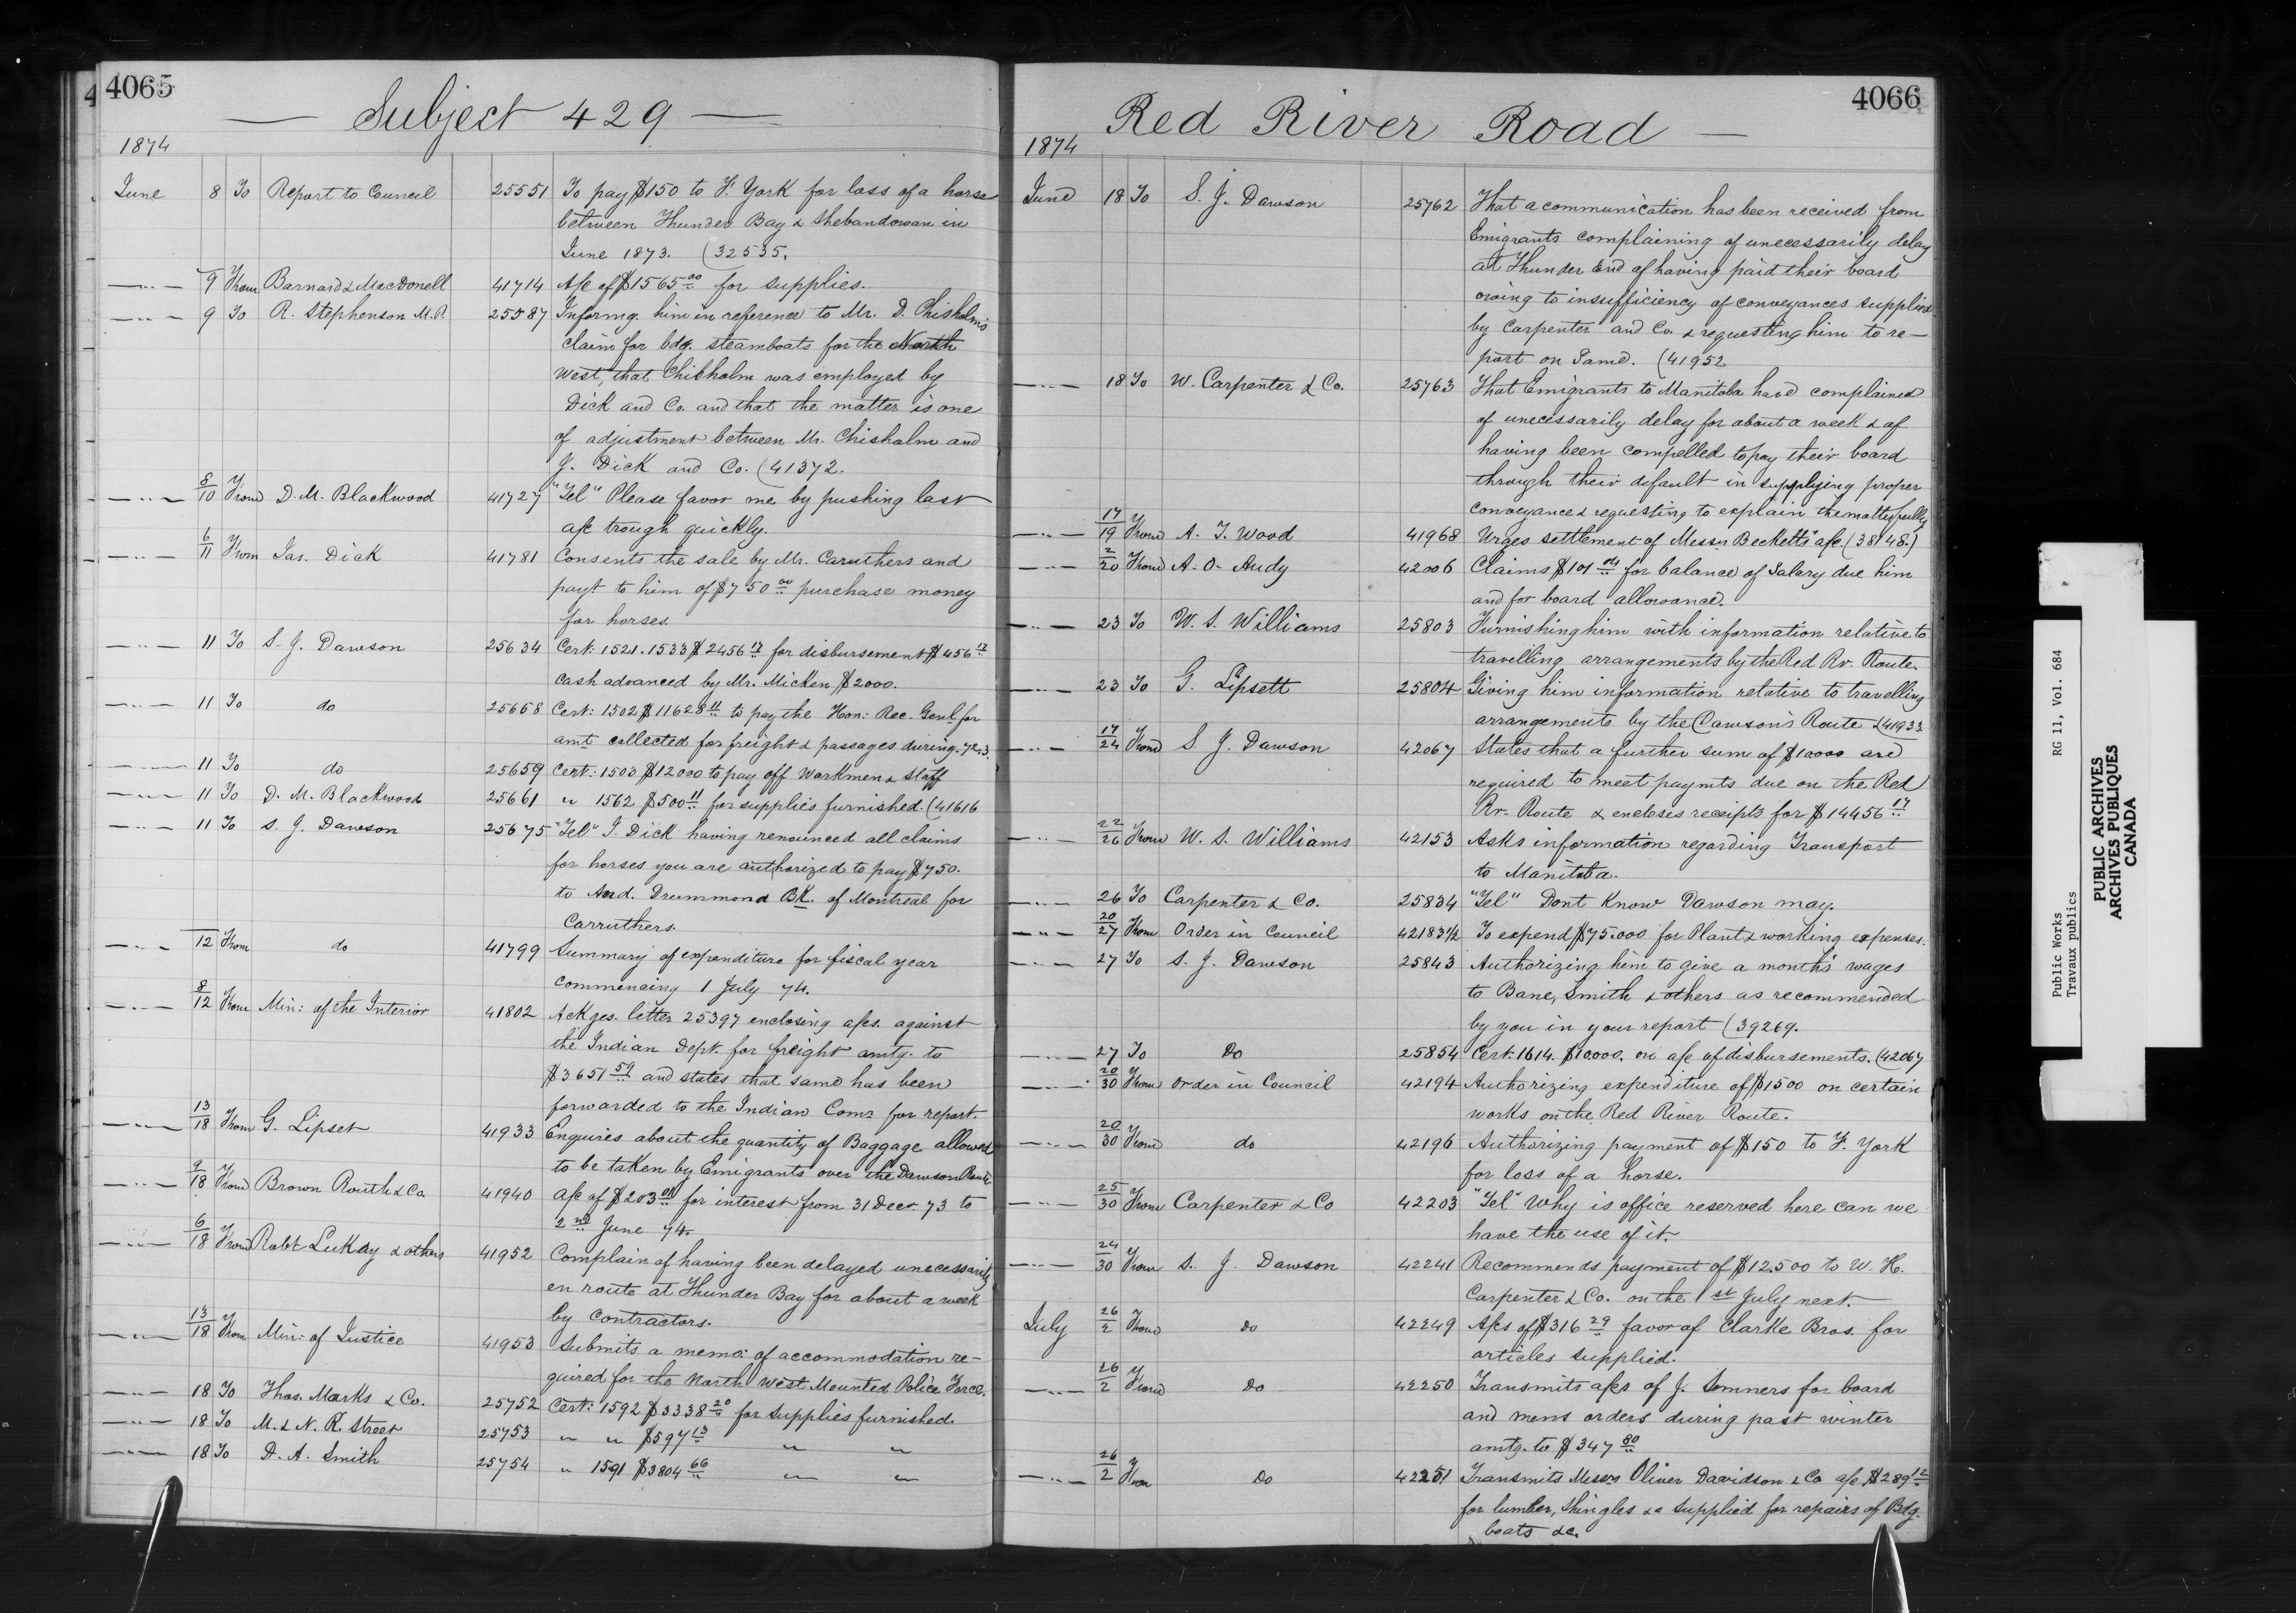 4065
Subject 429
1874
June 8 To Report to Council 25551 To pay $150 to F. York for loss of a horse
between Thunder Bay & Shebandowan in
June 1873. (32535.
9 From Barnard & MacDonell 41714 A/c of $1565.00 for supplies.
9 To R. Stephenson M.P. 25587 Informg. him in reference to Mr. D. Chisholm's
claim for bdg. steamboats for the North
West, that Chisholm was employed by
Dick and Co. and that the matter is one
of adjustment between Mr. Chisholm and
J. Dick and Co. (41372.
8/10 From D. M. Blackwood 41727 "Tel" Please favor me by pushing last
a/c trough quickly.
6/11 From Jas. Dick 41781 Consents the sale by Mr. Caruthers and
payt to him of $750.00 purchase money
for horses.
11 To S. J. Dawson 25634 Cert: 1521.1533 $2456.17 for disbursement $456.17
cash advanced by Mr. Micken $2000.
11 To do 25658 Cert: 1502 $11628.11 to pay the Hon: Rec. Genl for
amt collected for freight & passages during 72.3.
11 To do 25659 Cert: 1503 $12000 to pay off Workmen & Staff
11 To D. M. Blackwood 25661 " 1562 $500.11 for supplies furnished. (41616
11 To S. J. Dawson 25675 "Tel" J. Dick having renounced all claims
for horses you are authorized to pay $750.
to And. Drummond BK. of Montreal for
Carruthers.
12 From do 41799 Summary of expenditure for fiscal year
commencing 1 July 74.
8/12 From Min: of the Interior 41802 Ackges. letter 25397 enclosing a/cs. against
the Indian Dept. for freight amtg. to
$3651.59 and states that same has been
forwarded to the Indian Comr for report.
13/18 From G. Lipset 41933 Enquires about the quantity of Baggage allowed
to be taken by Emigrants over the Dawson Route
9/18 From Brown Routh & Co. 41940 a/c of $203.04 for interest from 31 Decr. 73 to
2nd June 74.
6/18 From Robt LuKay & others 41952 Complain of having been delayed unecessarily
en route at Thunder Bay for about a week
by contractors.
13/18 From Min: of Justice 41953 Submits a memo: of accommodation re-
quired for the North West Mounted Police Force.
18 To Thos. Marks & Co. 25752 Cert: 1592 $3338.20 for supplies furnished.
18 To M. & N. R. Street 25753 " " $597.13 " "
18 To D. A. Smith 25754 " 1591 $3804.66 " "
4066
Red River Road
1874
June 18 To S. J. Dawson 25762 That a communication has been received from
Emigrants complaining of unecessarily delay
at Thunder End of having paid their board
owing to insufficiency of conveyances supplied
by Carpenter and Co. & requesting him to re-
port on Same. (41952
18 To W. Carpenter & Co. 25763 That Emigrants to Manitoba have complained
of unecessarily delay for about a week & of
having been compelled to pay their board
through their default in supplying proper
conveyance & requesting to explain the matter fully
17/19 From A. T. Wood 41968 Urges settlement of Messrs Becketts' a/c. (38148.)
2/20 From A. O. Audy 42006 Claims $101.04 for balance of Salary due him
and for board allowance.
23 To W. S. Williams 25803 Furnishing him with information relative to
travelling arrangements by the Red Rv. Route.
23 To G. Lipsett 25804 Giving him information relative to travelling
arrangements by the Dawson's Route (41933
17/24 From S. J. Dawson 42067 States that a further sum of $10000 are
required to meet paymts due on the Red
Rv. Route & encloses receipts for $14456.17
22/26 From W. S. Williams 42153 Asks information regarding Transport
to Manitoba.
26 To Carpenter & Co. 25834 "Tel" Dont Know Dawson may.
20/27 From Order in Council 42183½ To expend $75.000 for Plant & working expenses.
27 To S. J. Dawson 25843 Authorizing him to give a month's wages
to Bane, Smith & others as recommended
by you in your report (39269.
27 To Do 25854 Cert: 1614. $10000. on a/c of disbursements. (42067
20/30 From order in Council 42194 Authorizing expenditure of $1500 on certain
works on the Red River Route.
20/30 From do 42196 Authorizing payment of $150 to F. York
for loss of a horse.
25/30 From Carpenter & Co 42203 "Tel" Why is office reserved here can we
have the use of it.
24/30 From S. J. Dawson 42241 Recommends payment of $12.500 to W. H.
Carpenter & Co. on the 1st July next.
July 26/2 From do 42249 A/cs of $316.29 favor of Clarke Bros. for
articles supplied.
26/2 From Do 42250 Transmits a/cs of J. Somners for board
and mens orders during past winter
amtg. to $347.80
26/2 From Do 42251 Transmits Messrs Oliver Davidson & Co a/c $289.12
for lumber, Shingles &c supplied for repairs of Bdg.
boats &c.
Public Works RG 11, Vol. 684
Travaux publics
PUBLIC ARCHIVES
ARCHIVES PUBLIQUES
CANADA